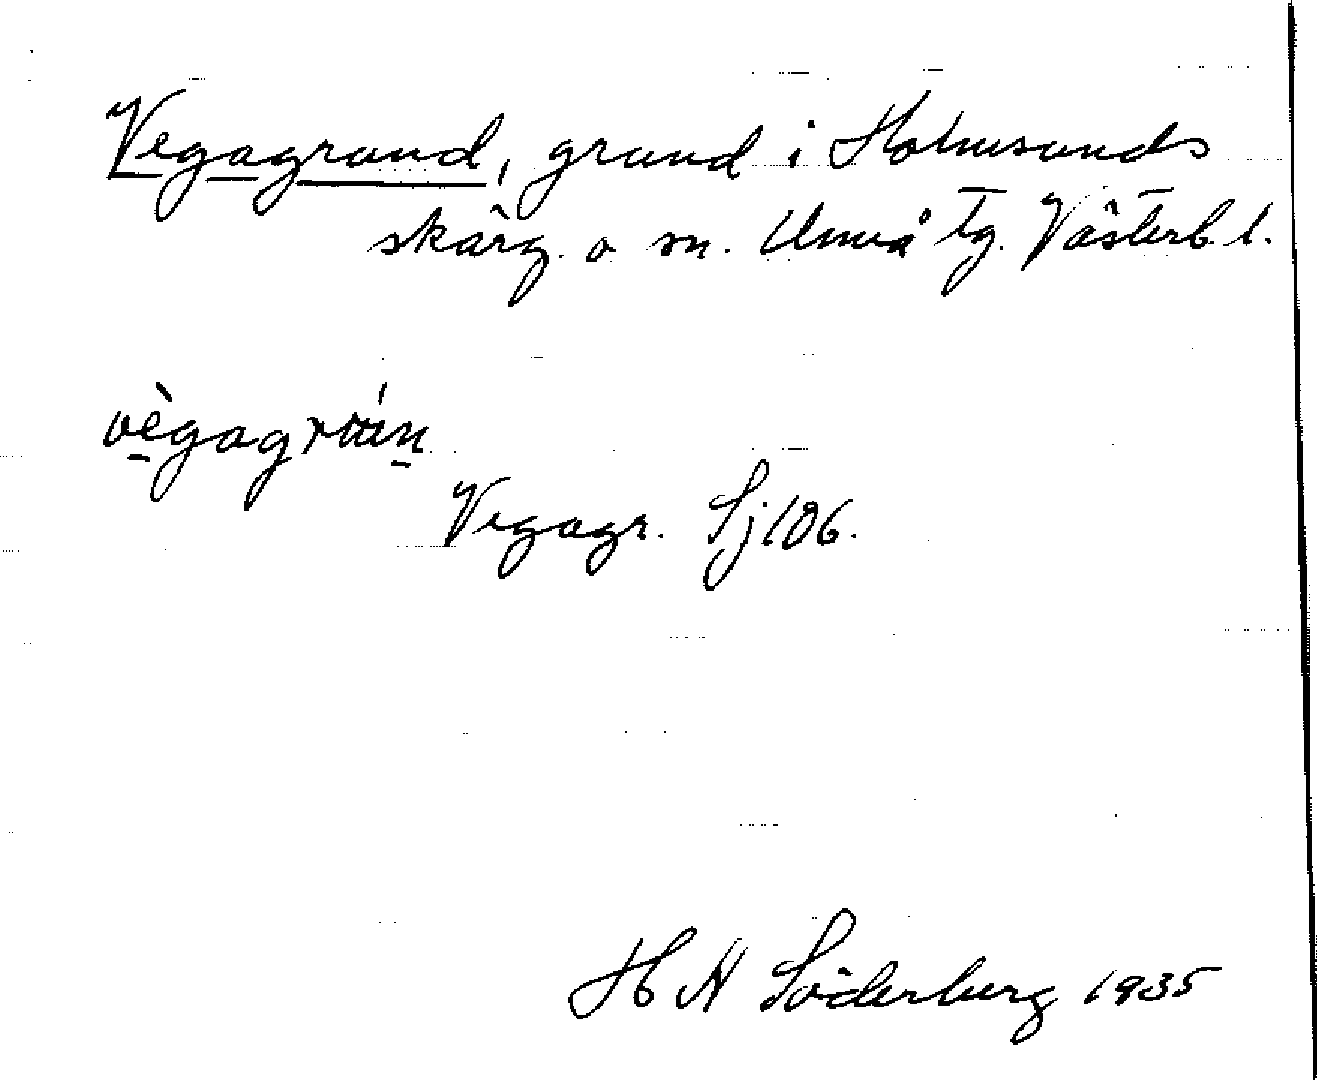 Vegagrund, grund i Holmsunds
skärg. o sn. Umeå tg. Västerb. l.
vègagrún
Vegagr. Sj 106.
H N Söderberg 1935